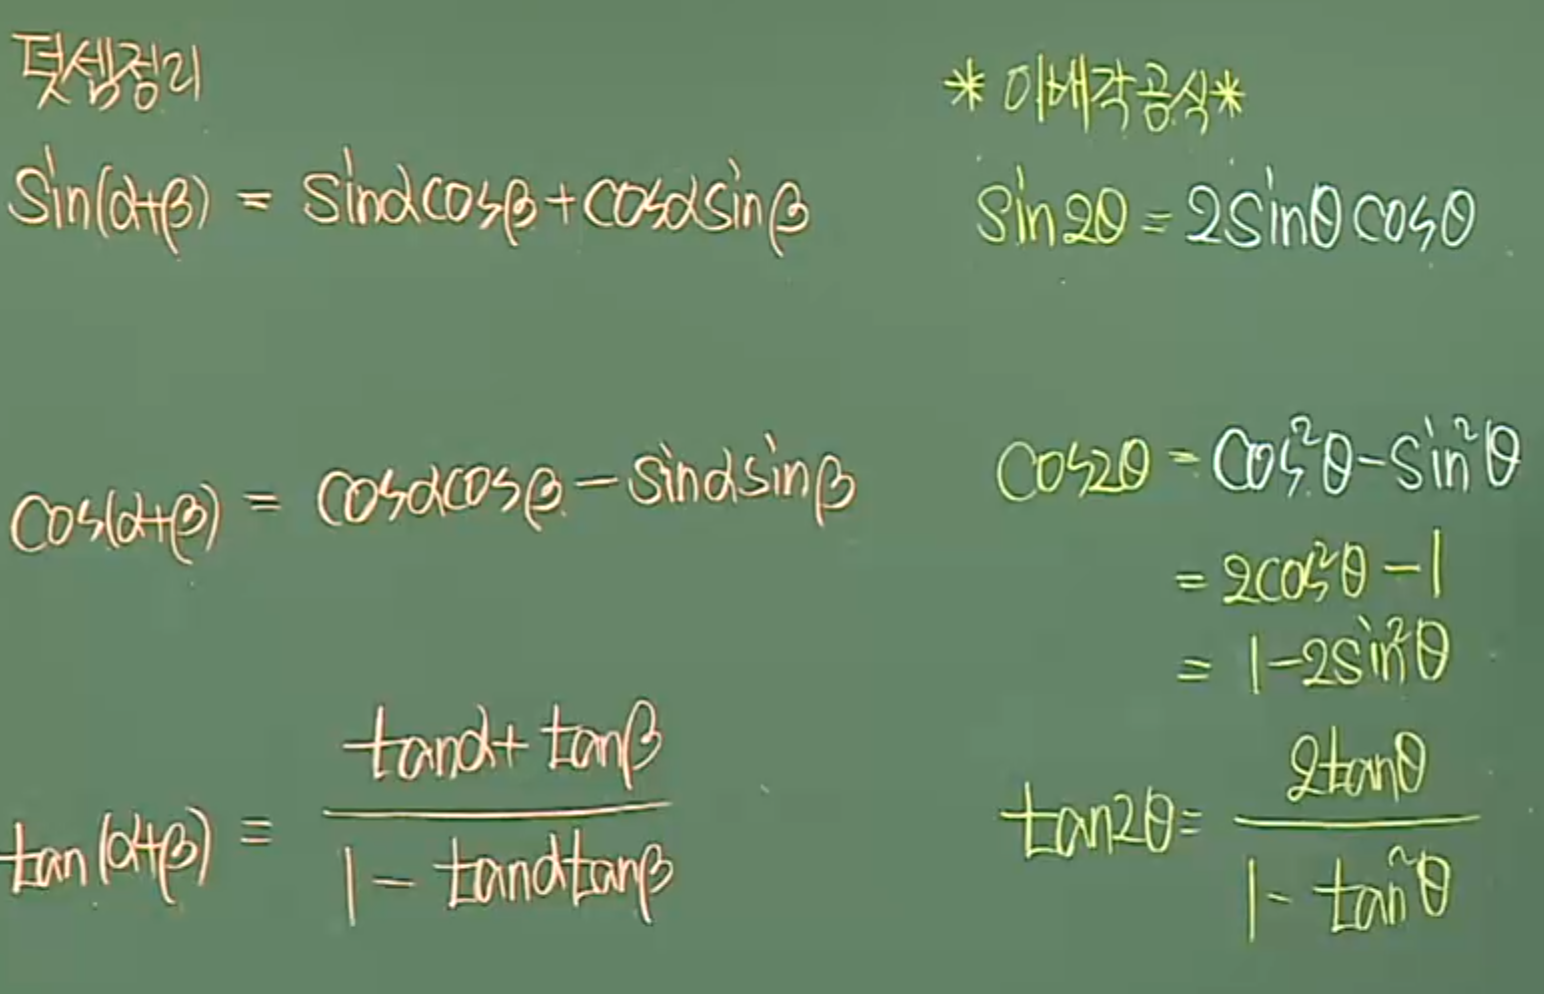 덧셈정리
sin(α+β) = sinαcosβ+cosαsinβ
cos(α+β) = cosαcosβ-sinαsinβ
tan(α+β) = (tanα+tanβ)/(1-tanαtanβ)
*이배각공식*
sin2θ = 2sinθcosθ
cos2θ = cos²θ-sin²θ
= 2cos²θ-1
= 1-2sin²θ
tan2θ = 2tanθ/(1-tan²θ)